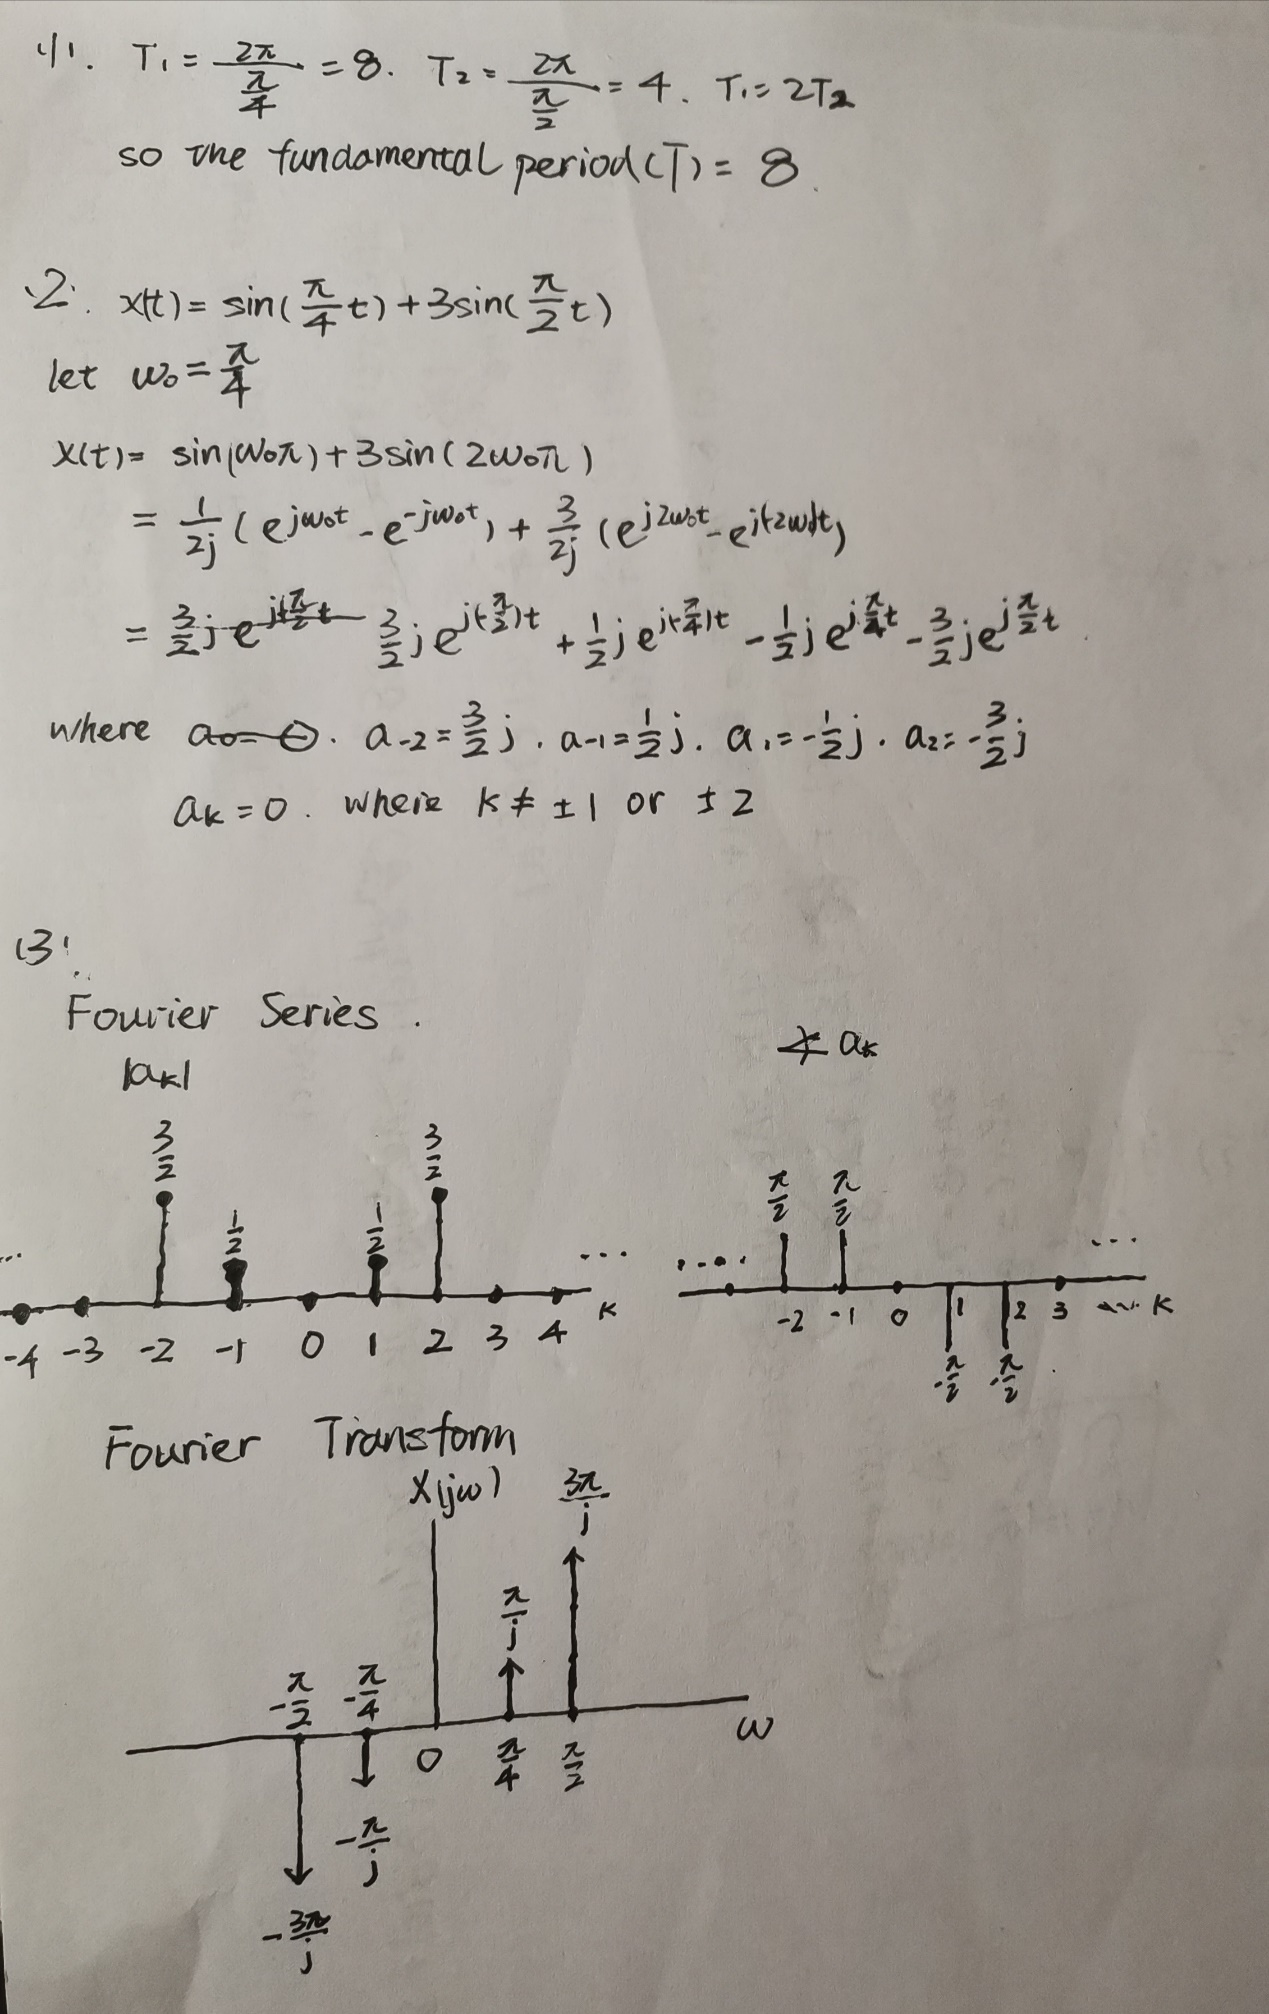 (1). T₁ = 2π/(π/4) = 8. T₂ = 2π/(π/2) = 4. T₁ = 2T₂
so the fundamental period(T) = 8.
2. x(t) = sin(π/4 t) + 3sin(π/2 t)
let w₀ = π/4
x(t) = sin(w₀π) + 3sin(2w₀π)
= 1/2j (e^{jw₀t} - e^{-jw₀t}) + 3/2j (e^{j2w₀t} - e^{j(-2w₀)t})
= 3/2 j e^{j(-π/2)t} + 1/2 j e^{j(-π/4)t} - 1/2 j e^{jπ/4 t} - 3/2 j e^{jπ/2 t}.
where a₀=0. a₋₂ = 3/2 j. a₋₁ = 1/2 j. a₁ = -1/2 j. a₂ = -3/2 j
aₖ = 0. where k ≠ ±1 or ±2
(3).
Fourier Series.
|aₖ|
3/2 1/2 1/2 3/2
... ...
-4 -3 -2 -1 0 1 2 3 4 k
∡ aₖ
π/2 π/2
.... ...
-2 -1 0 1 2 3 ... k
-π/2 -π/2
Fourier Transform
X(jw) 3π/j
π/j
-π/2 -π/4
0 π/4 π/2 w
-π/j
-3π/j